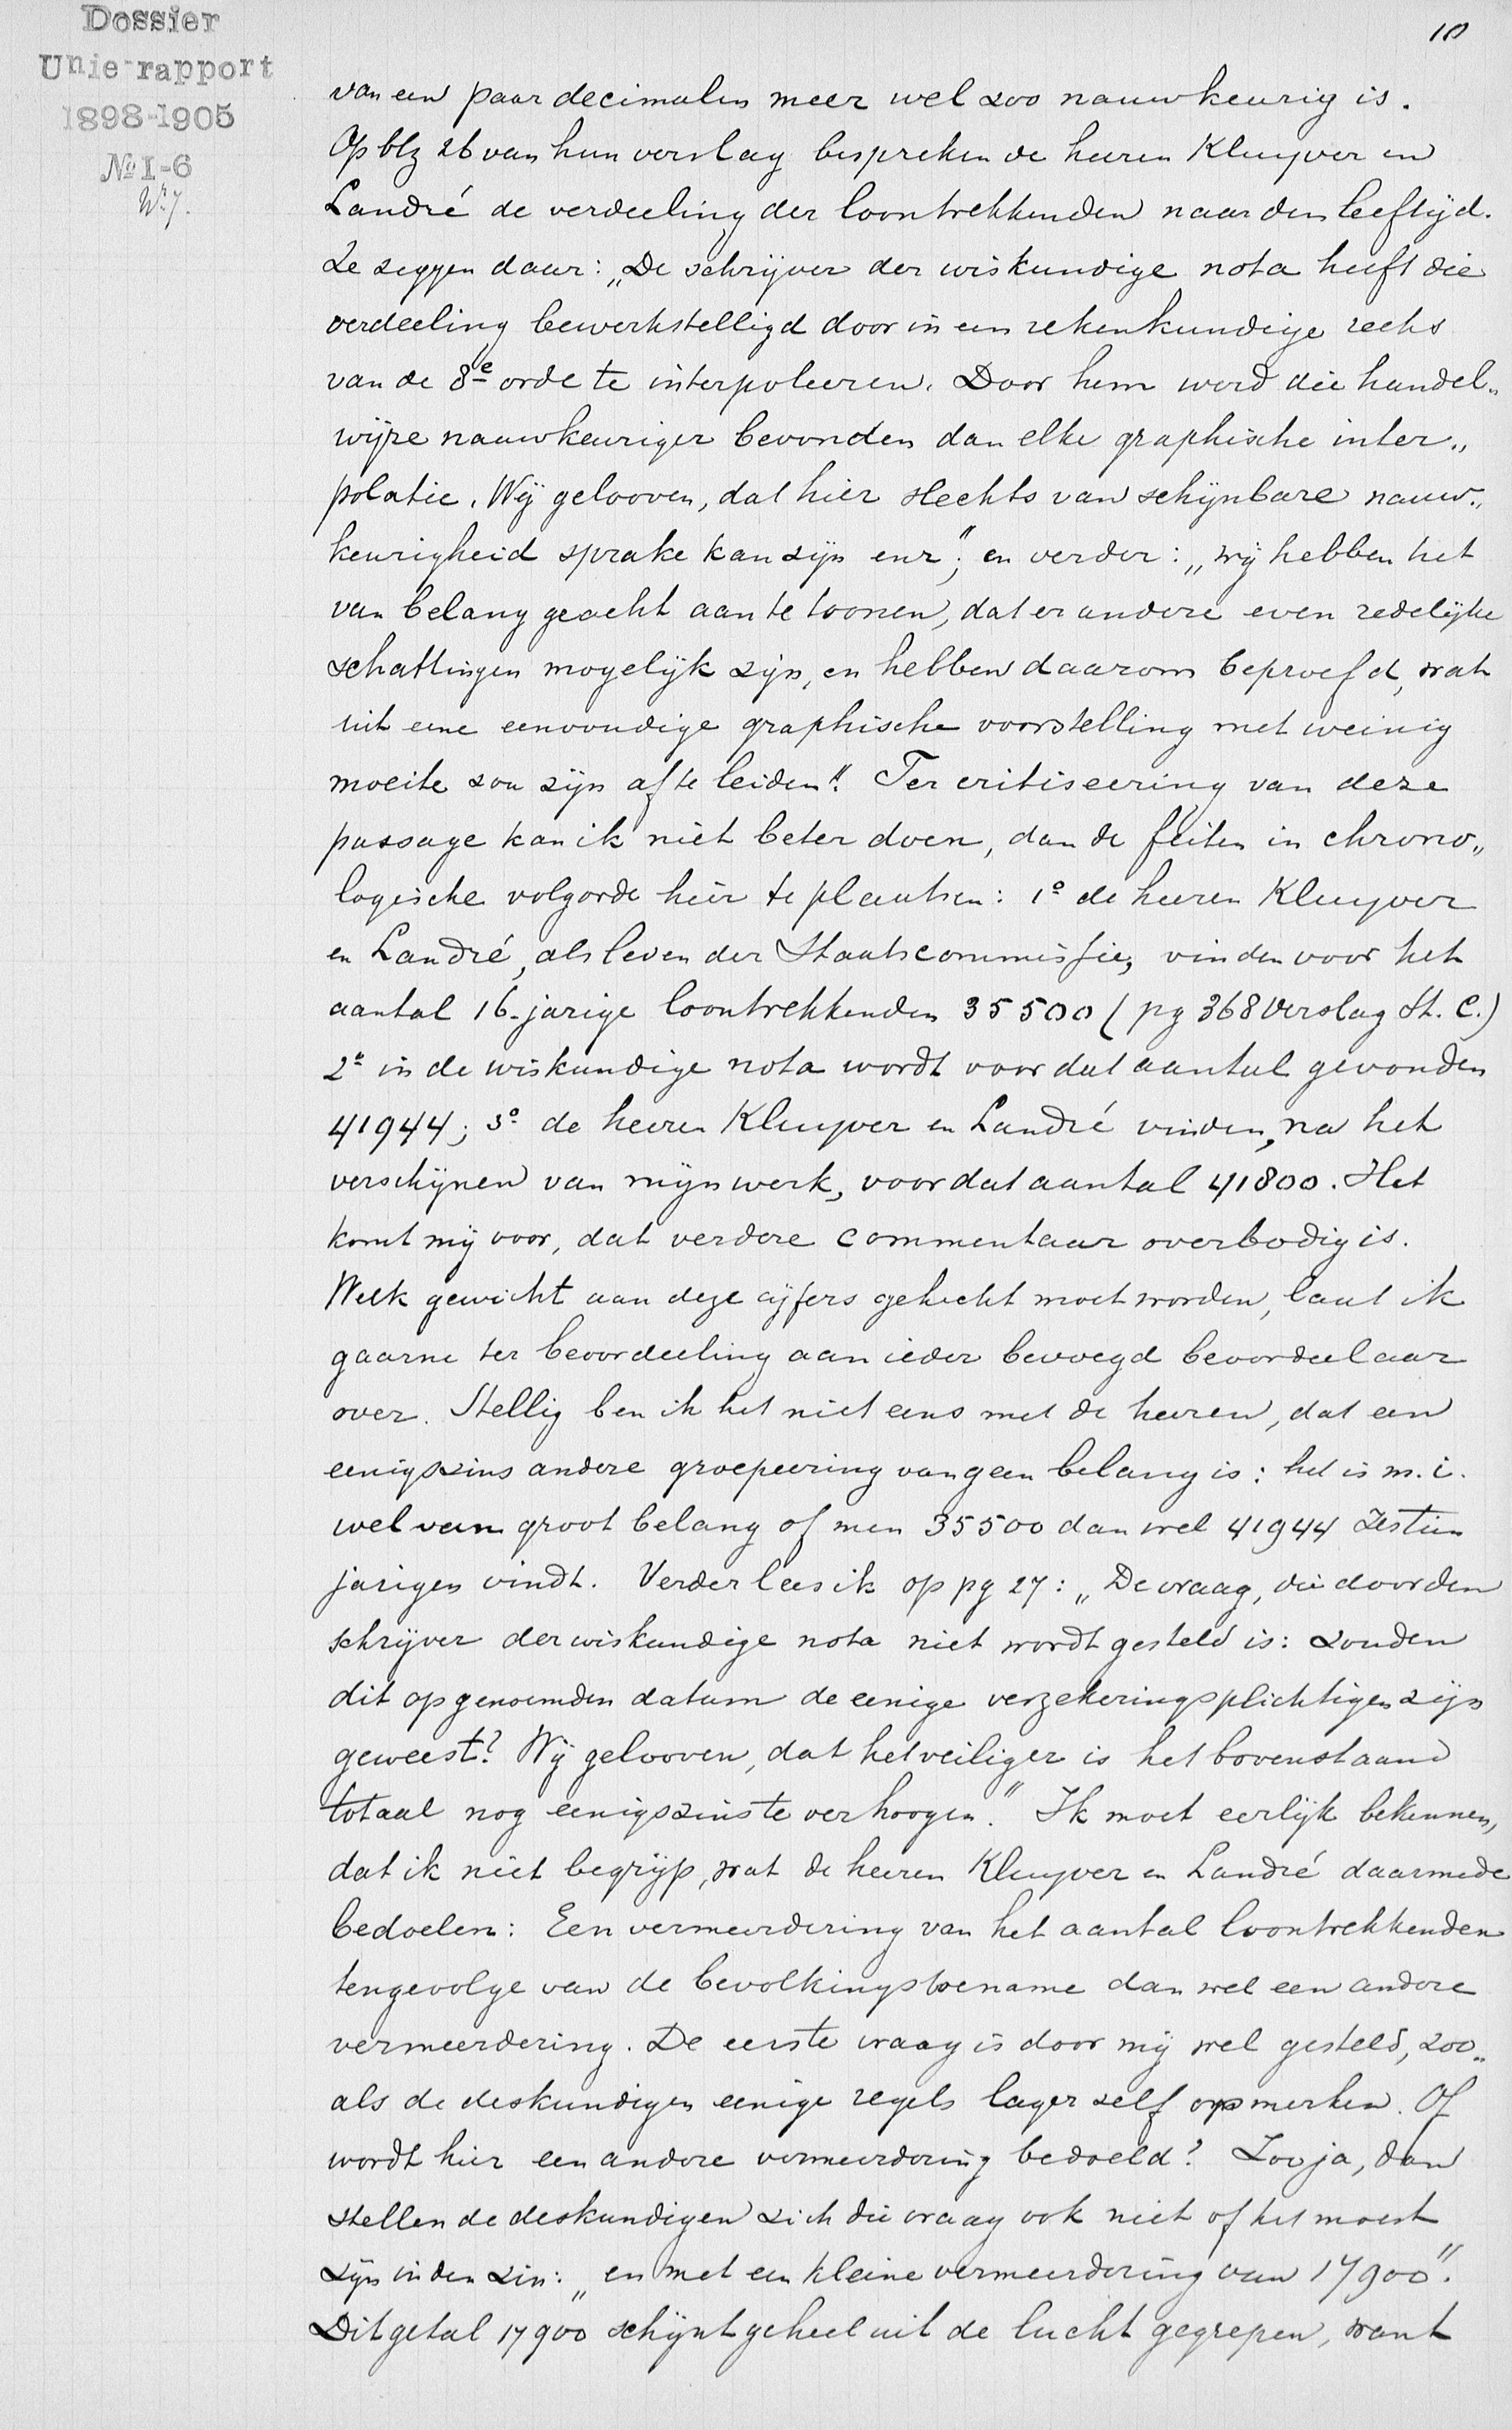 Dossier
Unie-rapport
1898-1905
№ I-6
10
van een paar decimalen meer wel zoo nauwkeurig is.
Op blz 26 van hun verslag bespreken de heeren Kluyver en
Landré de verdeeling der loontrekkenden naar den leeftijd.
Ze zeggen daar: „De schrijver der wiskundige nota heeft die
verdeeling bewerkstelligd door in een rekenkundige reeks
van de 8e orde te interpoleeren. Door hem werd die handel„
wijze nauwkeuriger bevonden dan elke graphische inter„
polatie. Wij gelooven, dat hier slechts van schijnbare nauw„
keurigheid sprake kan zijn enz”; en verder: „wij hebben het
van belang geacht aan te toonen, dat er andere even redelijke
schattingen mogelijk zijn, en hebben daarom beproefd, wat
uit eene eenvoudige graphische voorstelling met weinig
moeite zou zijn af te leiden”. Ter critiseering van deze
passage kan ik niet beter doen, dan de feiten in chrono„
logische volgorde hier te plaatsen: 1o de heeren Kluyver
en Landré, als leden der Staatscommissie, vinden voor het
aantal 16-jarige loontrekkenden 35500 (pg 368 Verslag St. C.)
2o in de wiskundige nota wordt voor dat aantal gevonden
41944; 3o de heeren Kluyver en Landré vinden, na het
verschijnen van mijn werk, voor dat aantal 41800. Het
komt mij voor, dat verdere commentaar overbodig is.
Welk gewicht aan deze cijfers gehecht moet worden, laat ik
gaarne ter beoordeeling aan ieder bevoegd beoordeelaar
over. Stellig ben ik het niet eens met de heeren, dat een
eenigszins andere groepeering van geen belang is: het is m.i.
wel van groot belang of men 35500 dan wel 41944 zestien
jarigen vindt. Verder lees ik op pg 27: „De vraag, die door den
schrijver der wiskundige nota niet wordt gesteld is: zouden
dit op genoemden datum de eenige verzekeringsplichtigen zijn
geweest? Wij gelooven, dat het veiliger is het bovenstaand
totaal nog eenigszins te verhoogen.” Ik moet eerlijk bekennen,
dat ik niet begrijp, wat de heeren Kluyver en Landré daarmede
bedoelen: Een vermeerdering van het aantal loontrekkenden
tengevolge van de bevolkingstoename dan wel een andere
vermeerdering. De eerste vraag is door mij wel gesteld, zoo„
als de deskundigen eenige regels lager zelf opmerken. Of
wordt hier een andere vermeerdering bedoeld? Zoo ja, dan
stellen de deskundigen zich die vraag ook niet of het moest
zijn in den zin: „en met een kleine vermeerdering van 17900”.
Dit getal 17900 schijnt geheel uit de lucht gegrepen, want